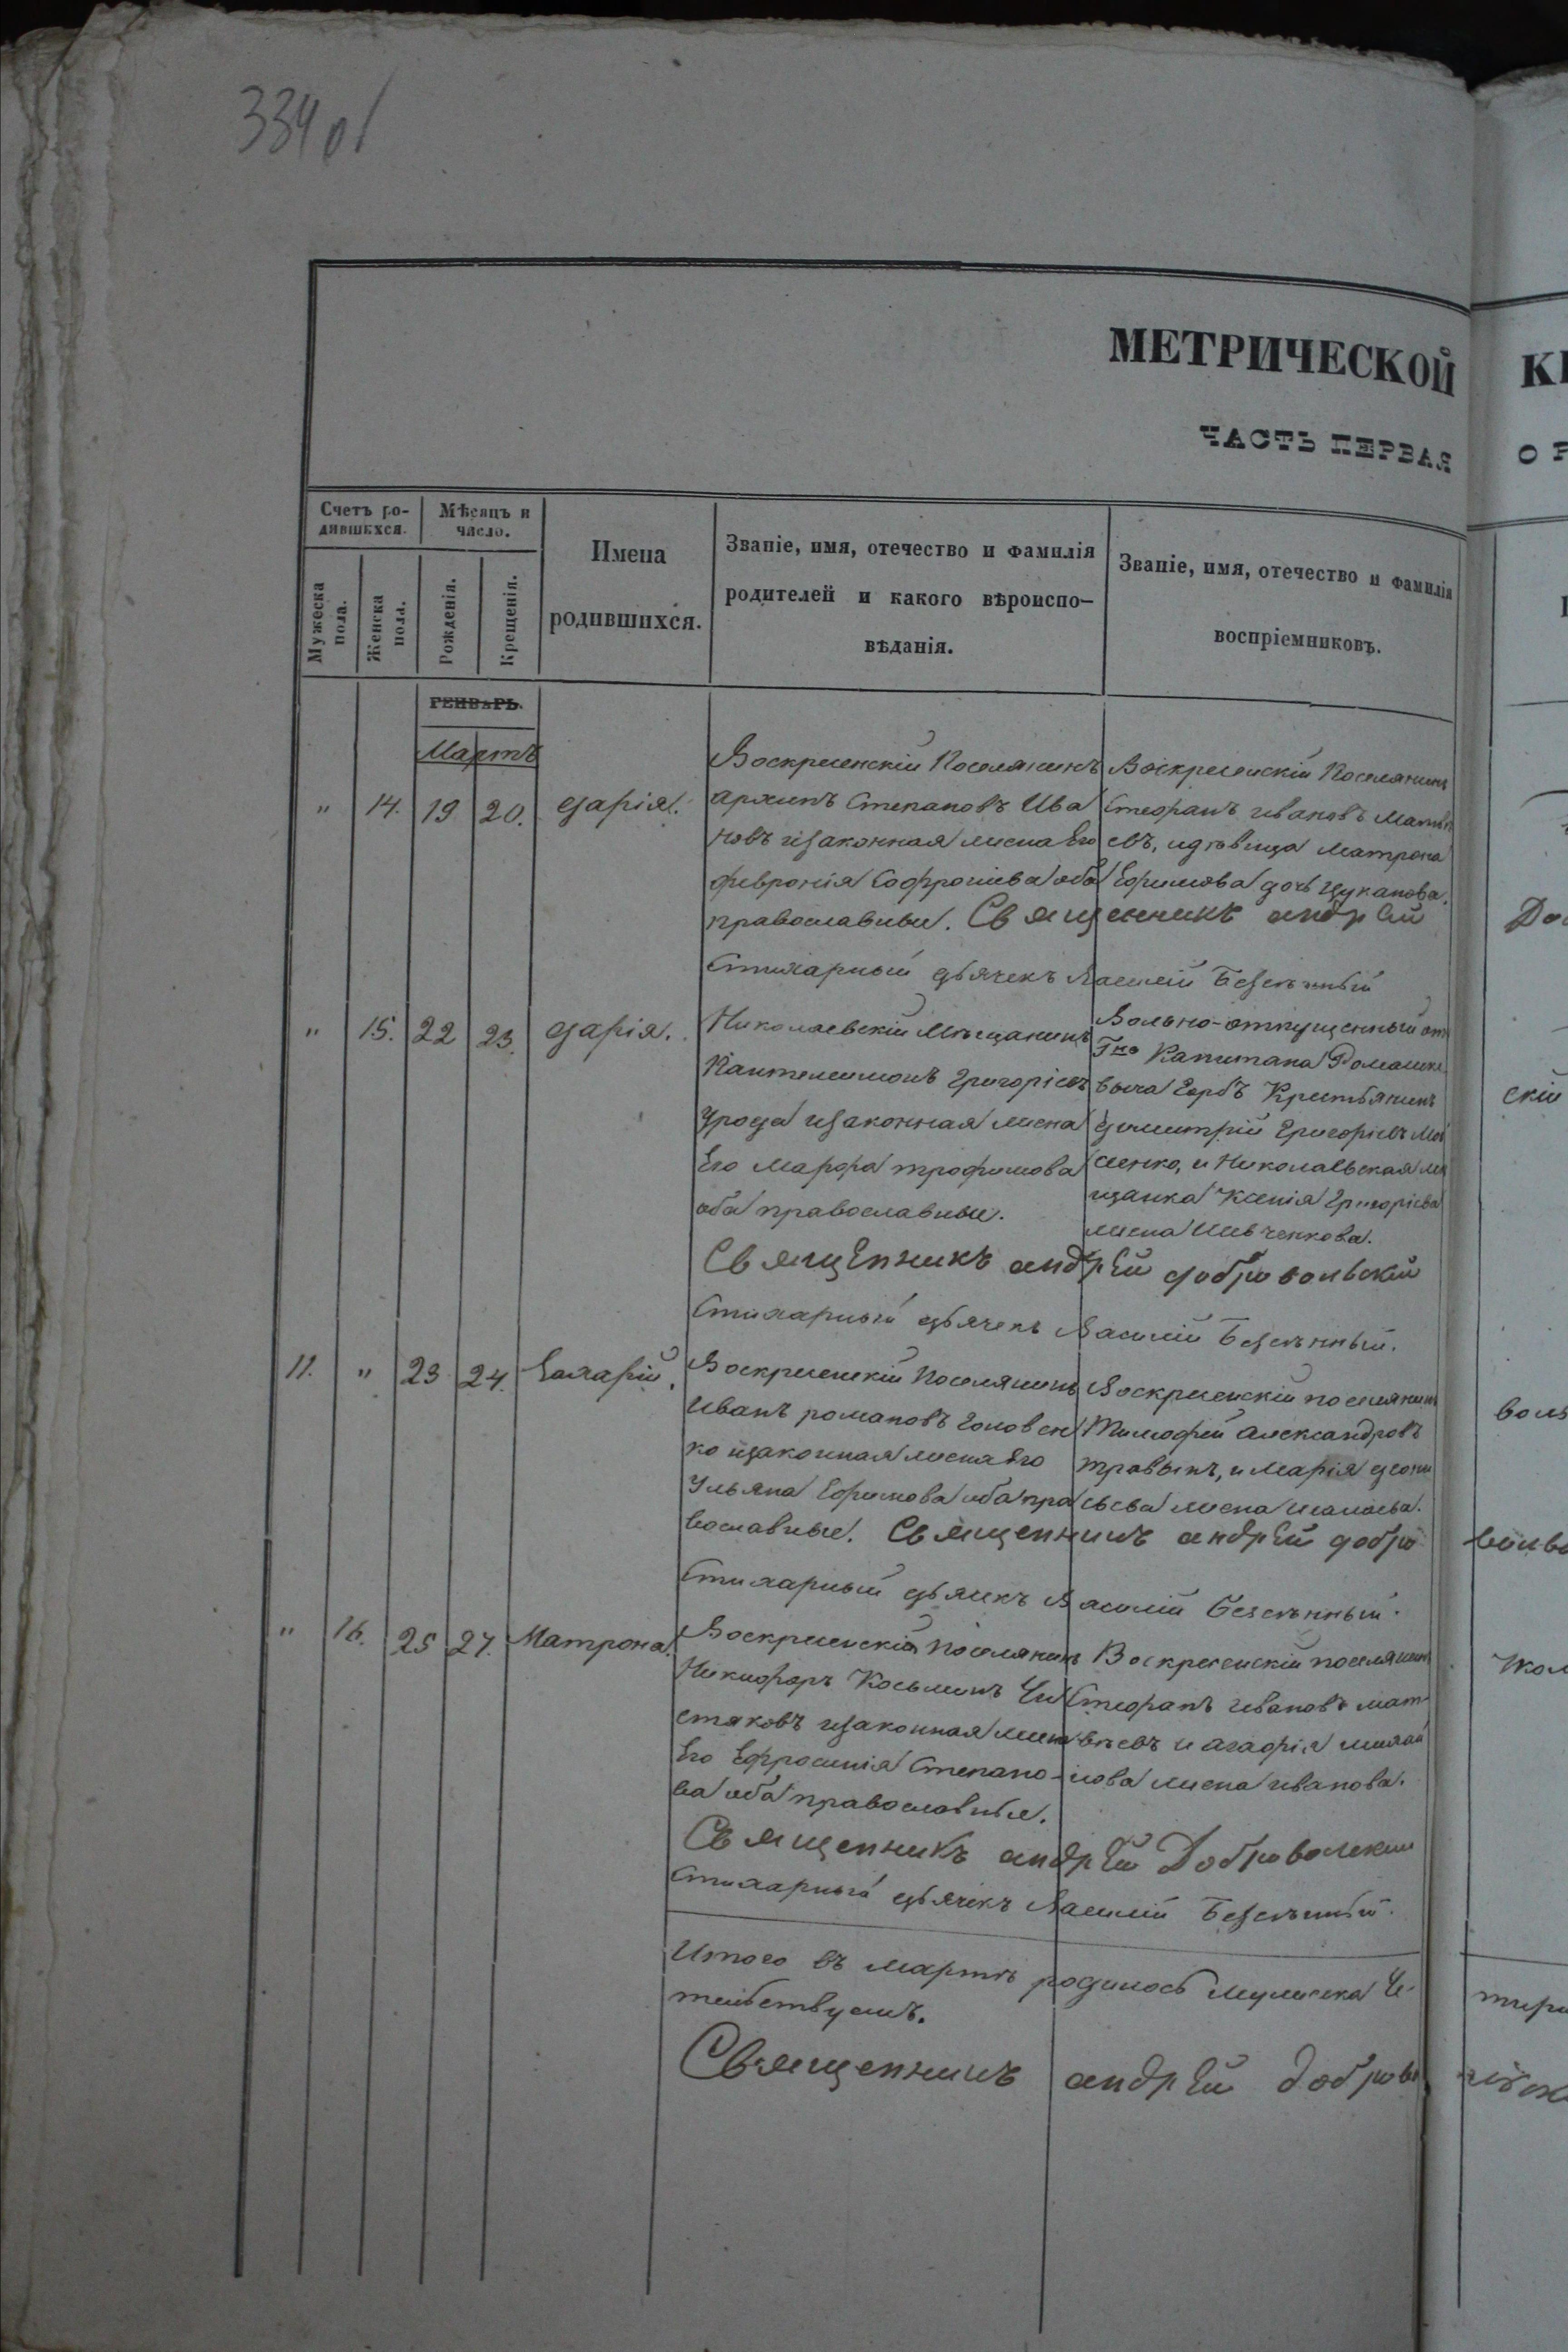 334 об
МЕТРИЧЕСКОЙ
ЧАСТЬ ПЕРВАЯ
Счетъ ро-
дившихся.
Мѣсяцъ и
число.
Мужеска
пола.
Женска
пола.
Рожденія.
Крещенія.
Имена
родившихся.
Званіе, имя, отечество и фамилія
родителей и какого вѣроиспо-
вѣданія.
Званіе, имя, отечество и фамилія
воспріемниковъ.
ГЕНВАРЬ.
Мартъ
" 14. 19 20. Дарія.
Воскресенскій Поселянинъ
Архипъ Степановъ Ива
новъ и законная жена Его
Феврония Софрониева оба
православные. Священникъ Андрей
Воскресенскій Поселянинъ
Стефанъ Ивановъ Матвѣ
евъ, и дѣвица Матрона
Ефимова дочь Цуканова.
Стихарный дьячекъ Василій Безсѣнный
" 15. 22 23. Дарія.
Николаевскій Мѣщанинъ
Пантелеимонъ Григоріевъ
и законная жена
Его Марфа Трофимова
оба православные.
Вольно-отпущенный отъ
Г-на Капитана
Крестьянинъ
Димитрій Григоріевъ Мои
сеенко, и Николаевская мѣ
щанка Ксенія Григоріева
жена Шевченкова.
Священникъ Андрей Добровольскій
Стихарный дьячекъ Василій Безсѣнный.
11. " 23 24. Захарій.
Воскресенскій Поселянинъ
Иванъ Романовъ Головен
ко и законная жена Его
Ульяна Ефимова оба пра
вославные. Священникъ Андрей Добро
Воскресенскій поселянинъ
Тимофей Александровъ
и Марія Деони
сьева жена
Стихарный дьячекъ Василій Безсѣнный.
" 16. 25 27. Матрона.
Воскресенскій поселянинъ
Никифоръ Косьминъ Чи
стяковъ и законная жена
Его Ефросинія Степано-
ва оба православные.
Воскресенскій поселянинъ
Стефанъ Ивановъ Мат
вѣевъ и Агафія Михаи
лова жена Иванова.
Священникъ Андрей Добровольскій
Стихарный дьячекъ Василій Безсѣнный.
Итого въ Мартѣ родилось мужеска Че
Священникъ Андрей Доброво